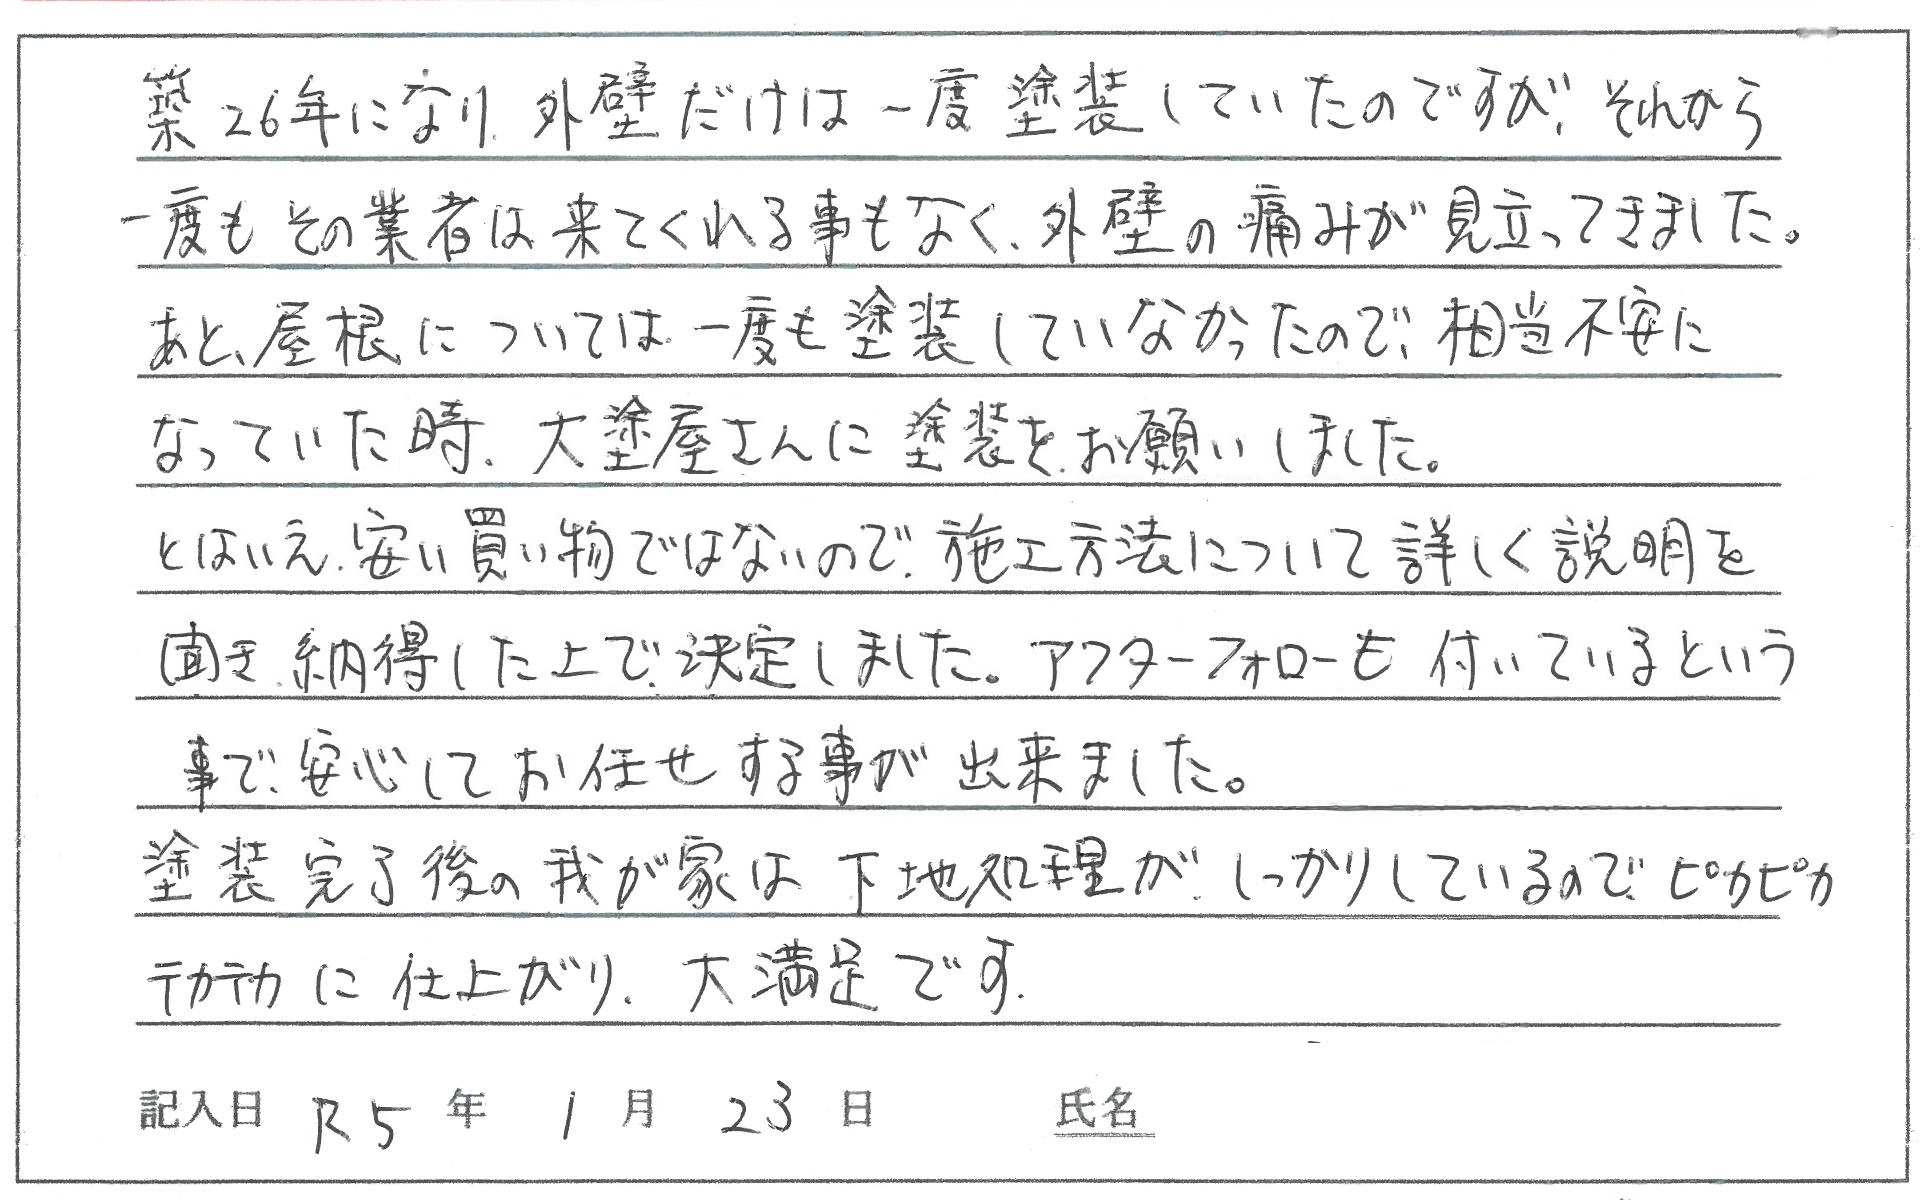 築26年になり、外壁だけは一度塗装していたのですが、それから
一度もその業者は来てくれる事もなく、外壁の痛みが見立ってきました。
あと、屋根については一度も塗装していなかったので、相当不安に
なっていた時、大塗屋さんに塗装をお願いしました。
とはいえ、安い買い物ではないので、施工方法について詳しく説明を
聞き、納得した上で、決定しました。アフターフォローも付いているという
事で、安心してお任せする事が出来ました。
塗装完了後の我が家は下地処理が、しっかりしているので、ピカピカ
テカテカに仕上がり、大満足です。
記入日 R5年 1月 23日 氏名